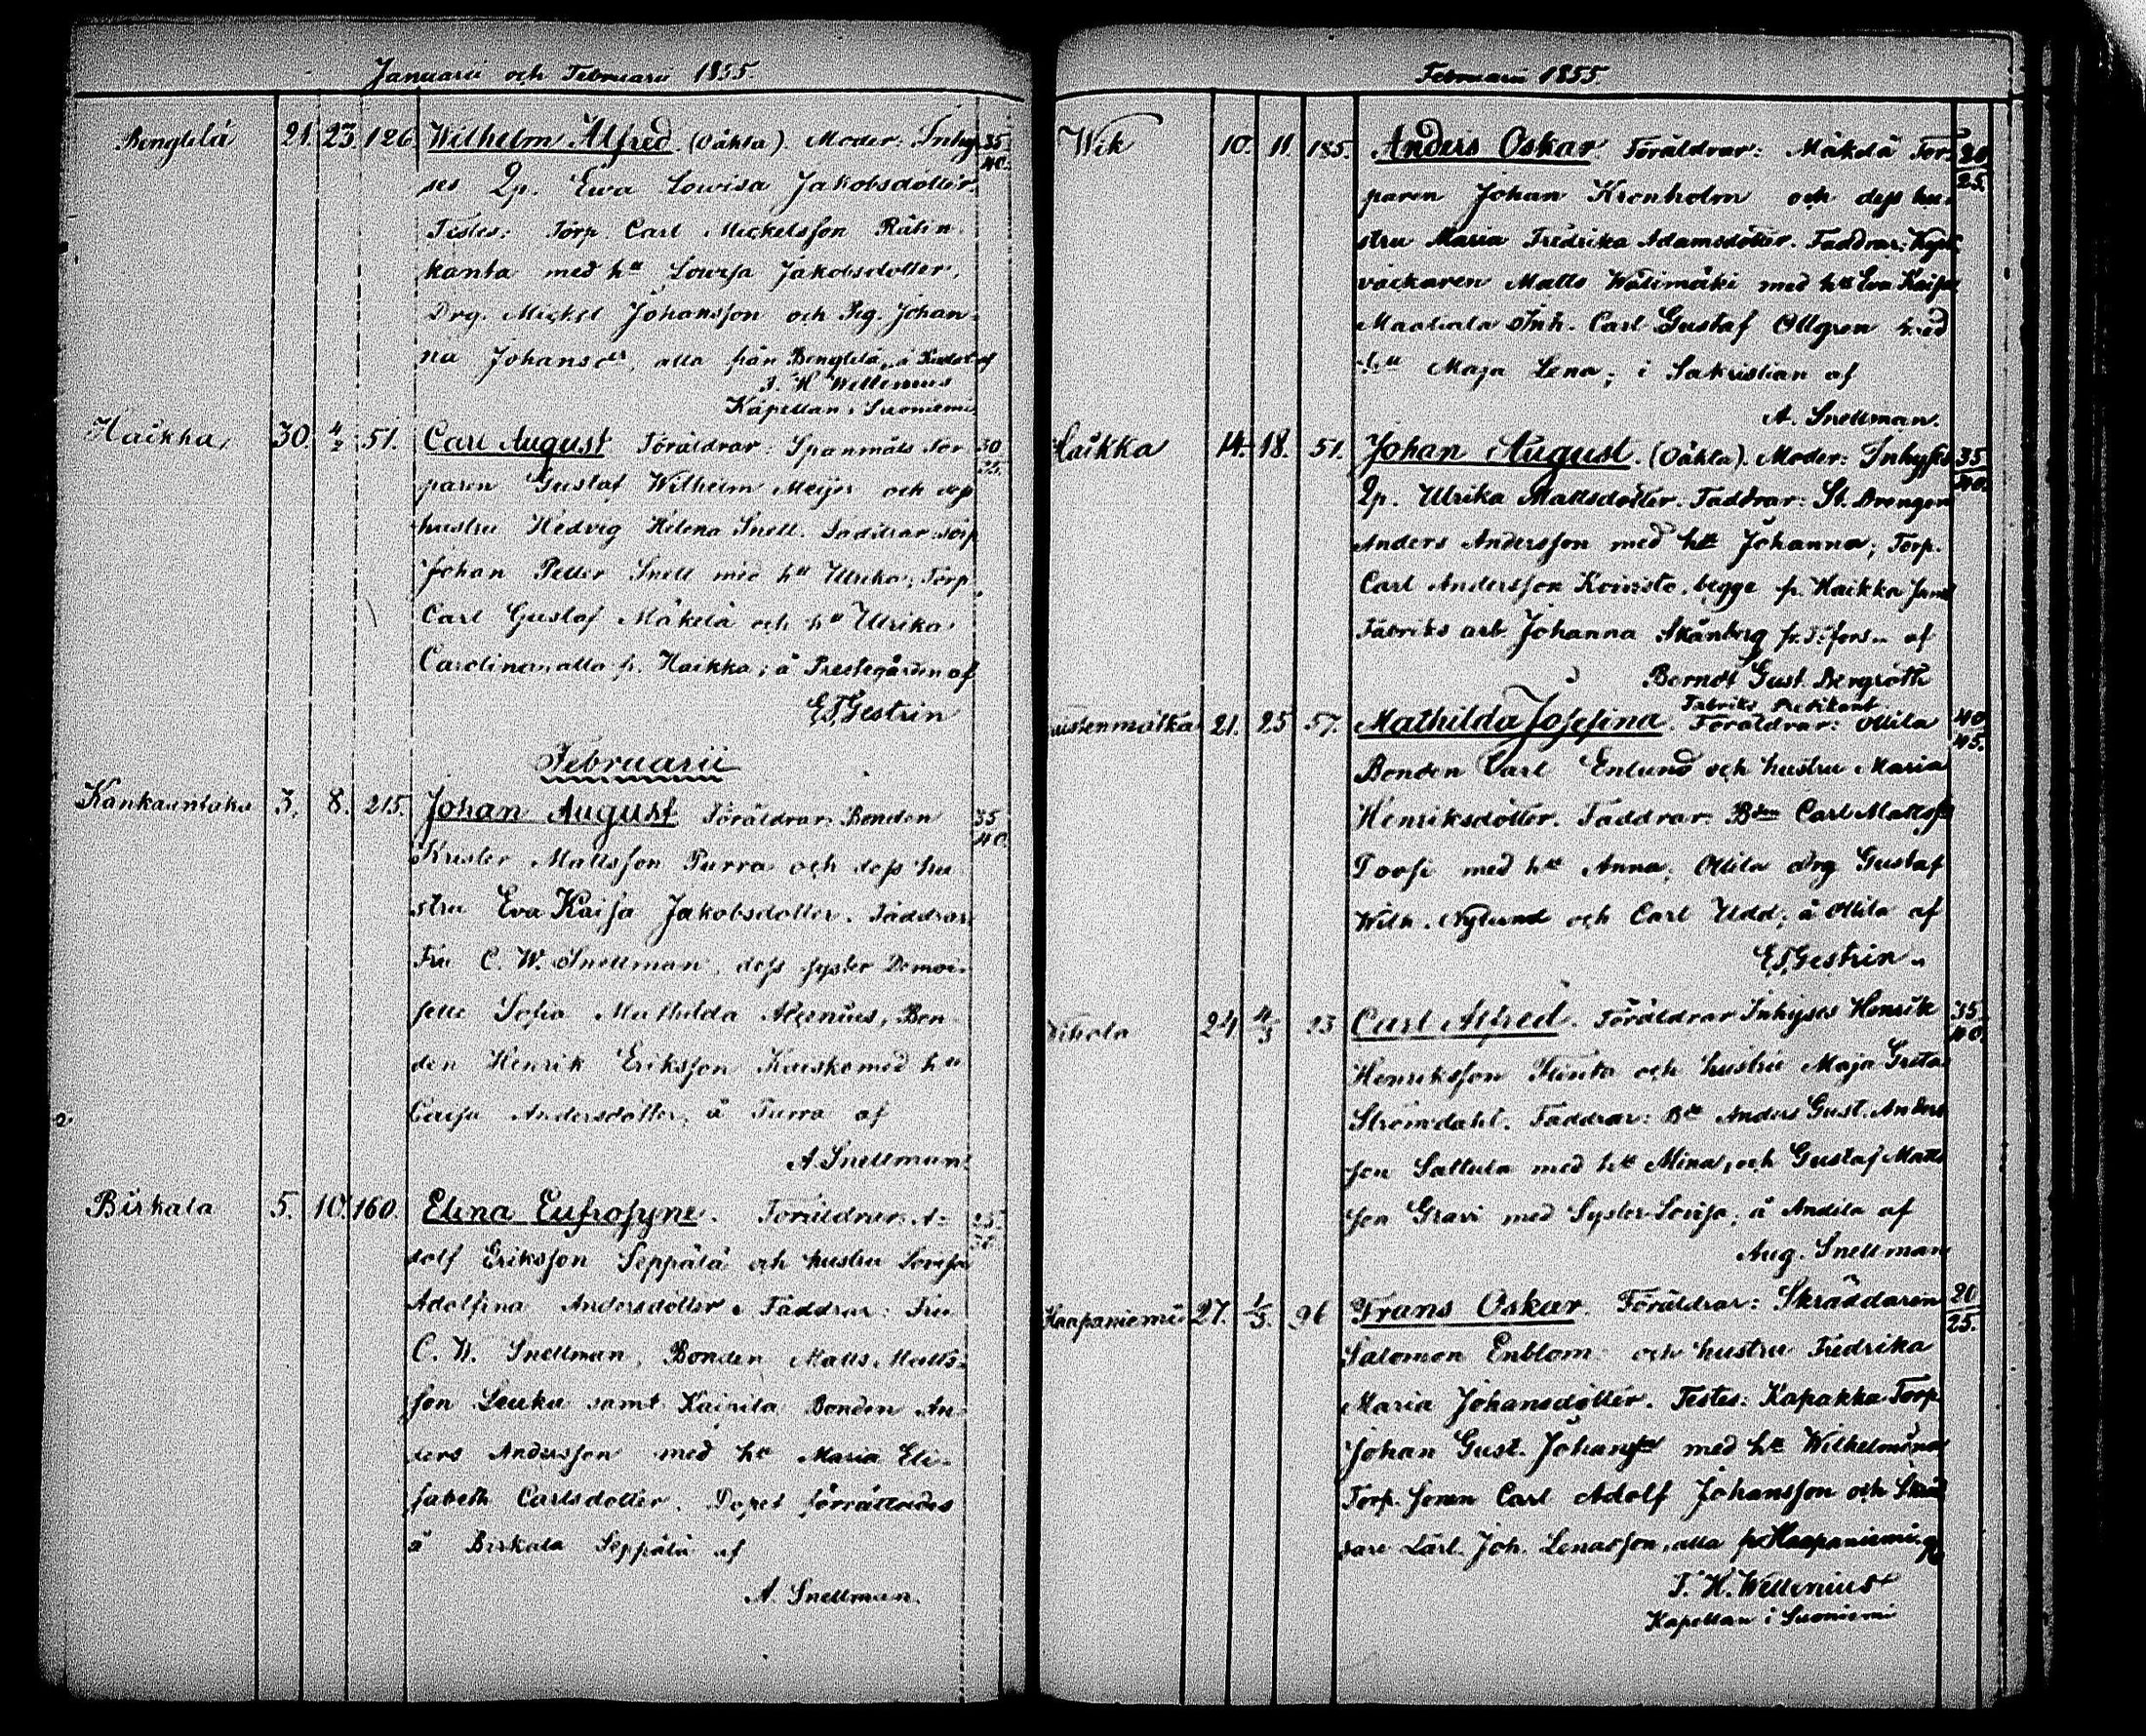 Januarii och Februarii 1855.
Benglelä 21. 23. 126 Wilhelm Alfred. (Oäkta). Moder: Inhy- 35
ses Qp. Ewa Lowisa Jakobsdotter. 40.
Testes: Torp. Carl Mickelsson Rätin
kanta med h:u Lowisa Jakobsdotter,
Drg. Mickel Johansson och Pig. Johan-
na Johansdr, alla från Benglelä, å af
J. H. Wellenius
Kapellan i Suoniemi
Haikka, 30. 4/2 51. Carl August Föräldrar: Spanmåls Tor- 30
paren Gustaf Wilhelm Meijer och dess 25.
hustru Hedvig Helena Snell. Faddrar: Torp
Johan Petter Snell med h:u Ulrika; Torp
Carl Gustaf Mäkelä och h:u Ulrika
Carolina, alla fr. Haikka; å Prestegården af
E.J. Gestrin
Februarii
Kankaantaka 3. 8. 215. Johan August Föräldrar: Bonden 35
Krister Mattsson Purra och dess hu 40.
stru Eva Kaisa Jakobsdotter. Faddrar:
Fru C. W. Snellman, dess syster Demoi-
selle Sofia Mathilda Alcenius, Bon-
den Henrik Eriksson Kauska med h:u
Caisa Andersdotter, å Purra af
A. Snellman.
Birkala 5. 10. 160. Elina Eufrosyne. Föräldrar: A- 25.
dolf Eriksson Seppälä och hustru Lovisa
Adolfina Andersdotter. Faddrar: Fru
C. W. Snellman, Bonden Matts Matts-
son Leuku samt Kairila Bonden An-
ders Andersson med h:u Maria Eli-
sabeth Carlsdotter. Dopet förrättades
å Birkala Seppälä af
A. Snellman.
Februarii 1855.
Wik 10. 11. 185. Anders Oskar. Föräldrar: Mäkelä Tor- 20
paren Johan Kronholm och dess hu- 25.
stru Maria Fredrika Adamsdotter. Faddrar:
väckaren Matts Wälimäki med h:u Eva Kaisa
Maatiala Inh. Carl Gustaf Ollgren med
h:u Maja Lena; i Sakristian af
A. Snellman.
Haikka 14. 18. 51. Johan August. (Oäkta). Moder: Inhyses 35
Qp. Ulrika Mattsdotter. Faddrar: St. Drengen 40.
Anders Andersson med h:u Johanna; Torp.
Carl Andersson Koivisto, begge fr. Haikka samt
Fabriks arb. Johanna Skånberg fr. T:fors. af
Berndt Gust. Bergroth
Fabriks Predikant
21. 25 57. Mathilda Josefina. Föräldrar: Ollila 40
Bonden Carl Enlund och hustru Maria 45.
Henriksdotter. Faddrar: Bden Carl Mattss
med h:u Anna; Ollila Drg Gustaf
Wilh. Nylund och Carl Udd; å Ollila af
E.J. Gestrin.
24 4/3 23 Carl Alfred. Föräldrar Inhyses Henrik 35
Henriksson Flinta och hustru Maja Greta 40.
Strömdahl. Faddrar: Bde Anders Gust. Anders
son Sallula med h:u Mina, och Gustaf Matts
son Gravi med Syster Lovisa, å Andila af
Aug. Snellman
Haapaniemi 27. 1/3. 96 Frans Oskar. Föräldrar: Skräddaren 20
Salomon Enblom och hustru Fredrika 25.
Maria Johansdotter. Testes: Kapakka Torp
Johan Gust. Johanss med h:u Wilhelmina
Torp. sonen Carl Adolf Johansson och Skräd
dare Lärl. Joh. Lenasson, alla fr Haapaniemi af
J. H. Wellenius
Kapellan i Suoniemi